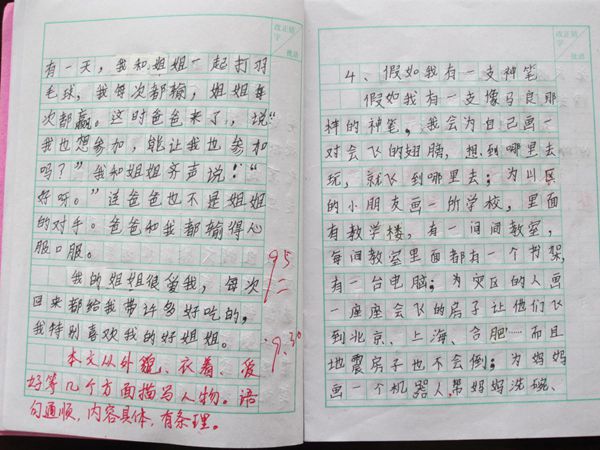 改正错字
批语
有一天，我和姐姐一起打羽
毛球，我每次都输，姐姐每
次都赢。这时爸爸来了，说“
我也想参加，能让我也参加
吗？”我和姐姐齐声说：“
好呀。”连爸爸也不是姐姐
的对手。爸爸和我都输得心
服口服。
我的姐姐很爱我，每次
回来都给我带许多好吃的，
我特别喜欢我的好姐姐。
95
9.30
本文从外貌、衣着、爱
好等几个方面描写人物。语
句通顺，内容具体，有条理。
改正错字
批语
4、假如我有一支神笔
假如我有一支像马良那
样的神笔，我会为自己画一
对会飞的翅膀，想到哪里去
玩，就飞到哪里去；为山区
的小朋友画一所学校，里面
有教学楼，有一间间教室，
每间教室里面都有一个书架，
有一台电脑；为灾区的人画
一座座会飞的房子让他们飞
到北京、上海、合肥……而且
地震房子也不会倒；为妈妈
画一个机器人，帮妈妈洗碗、